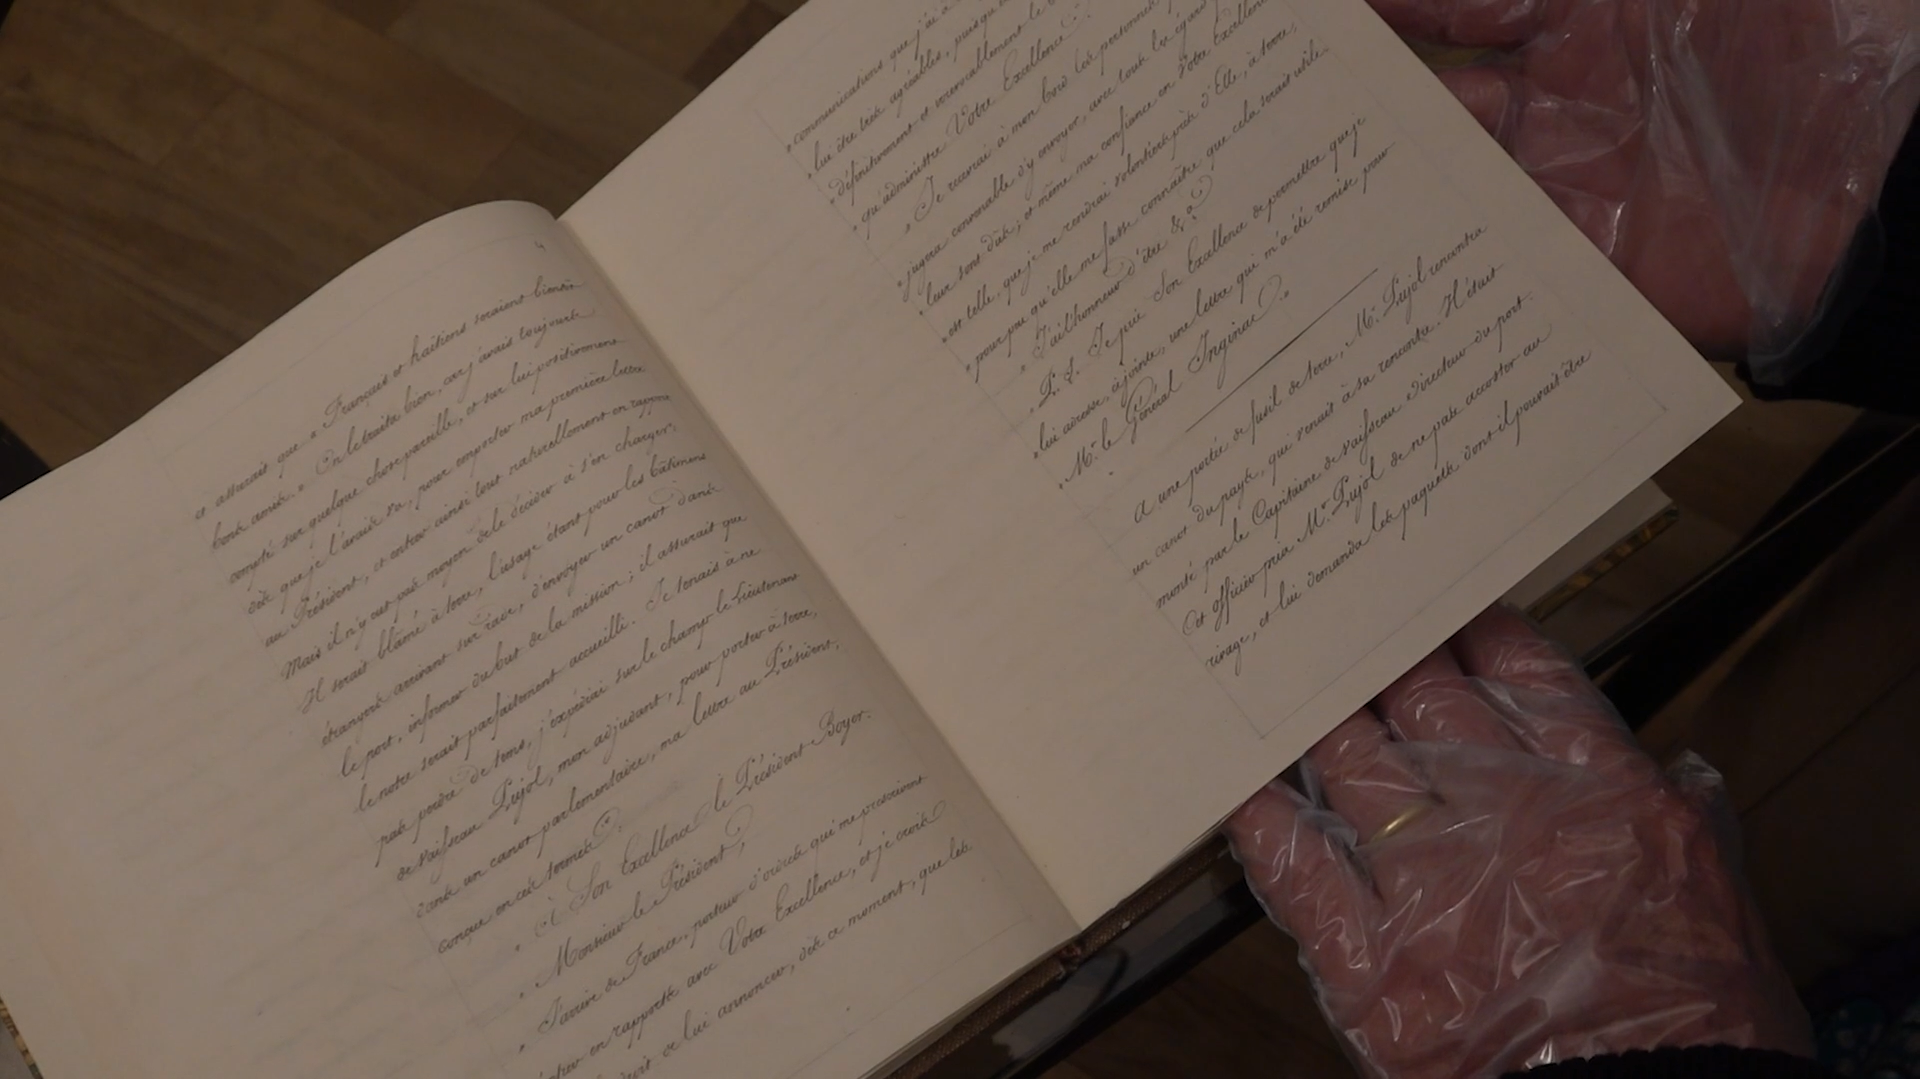 4
et assurait que « Français et haïtiens seraient bientôt
bons amis. » On le traita bien, car j'avais toujours
compté sur quelque chose pareille, et sur lui positivement
dès que je l'avais vu, pour emporter ma première lettre
au Président, et entrer ainsi tout naturellement en rapport
Mais il n'y eut pas moyen de le décider à s'en charger.
Il serait blâmé à terre, l'usage étant pour les bâtimens
étrangers arrivant sur rade, d'envoyer un canot dans
le port, informer du but de la mission ; il assurait que
le notre serait parfaitement accueilli. Je tenais à ne
pas perdre de tems, j'expédiai sur le champ le Lieutenant
de vaisseau Pujol, mon adjudant, pour porter à terre,
dans un canot parlementaire, ma lettre au Président,
conçue en ces termes :
« à Son Excellence le Président Boyer.
« Monsieur le Président,
« J'arrive de France, porteur d'ordres qui me prescrivent
entrer en rapports avec Votre Excellence, et je crois
de lui annoncer, dès ce moment, que les
communications que j'ai à
« lui être très agréables, puisqu'
« définitivement et irrévocablement le
« qu'administre Votre Excellence.
« Je recevrai à mon bord les personnes
« jugera convenable d'y envoyer, avec tous les égards
« leur sont dûs ; et même ma confiance en Votre Excellence
« est telle, que je me rendrai volontiers près d'Elle, à terre,
« pour peu qu'elle me fasse connaître que cela serait utile.
« J'ai l'honneur d'être &a
« P. S. Je prie Son Excellence de permettre que je
« lui adresse, ci jointe, une lettre qui m'a été remise pour
« Mr. le Général Inginac.»
A une portée de fusil de terre, Mr. Pujol rencontra
un canot du pays, qui venait à sa rencontre. Il était
monté par le Capitaine de vaisseau directeur du port.
Cet officier pria Mr. Pujol de ne pas accoster au
rivage, et lui demanda les paquets dont il pouvait être